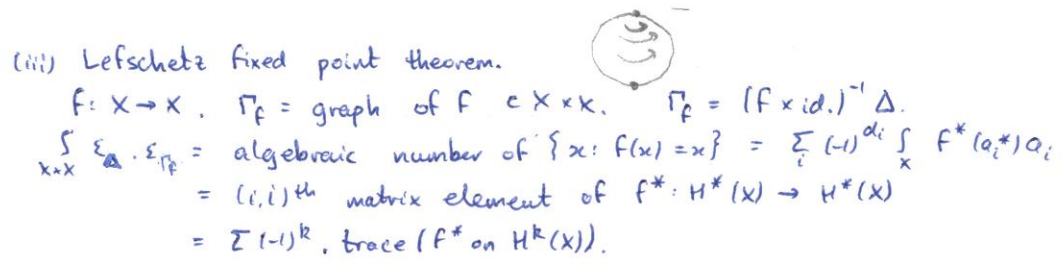 (iii) Lefschetz fixed point theorem.
f: X → X, Γ_f = graph of f ⊂ X × X. Γ_f = (f × id.)⁻¹ Δ.
∫_{X×X} ε_Δ . ε_{Γ_f} = algebraic number of {x: f(x) = x} = Σ_i (-1)^{d_i} ∫_X f*(a_i*) a_i
= (i,i)th matrix element of f*: H*(X) → H*(X)
= Σ (-1)^k . trace (f* on H^k(X)).